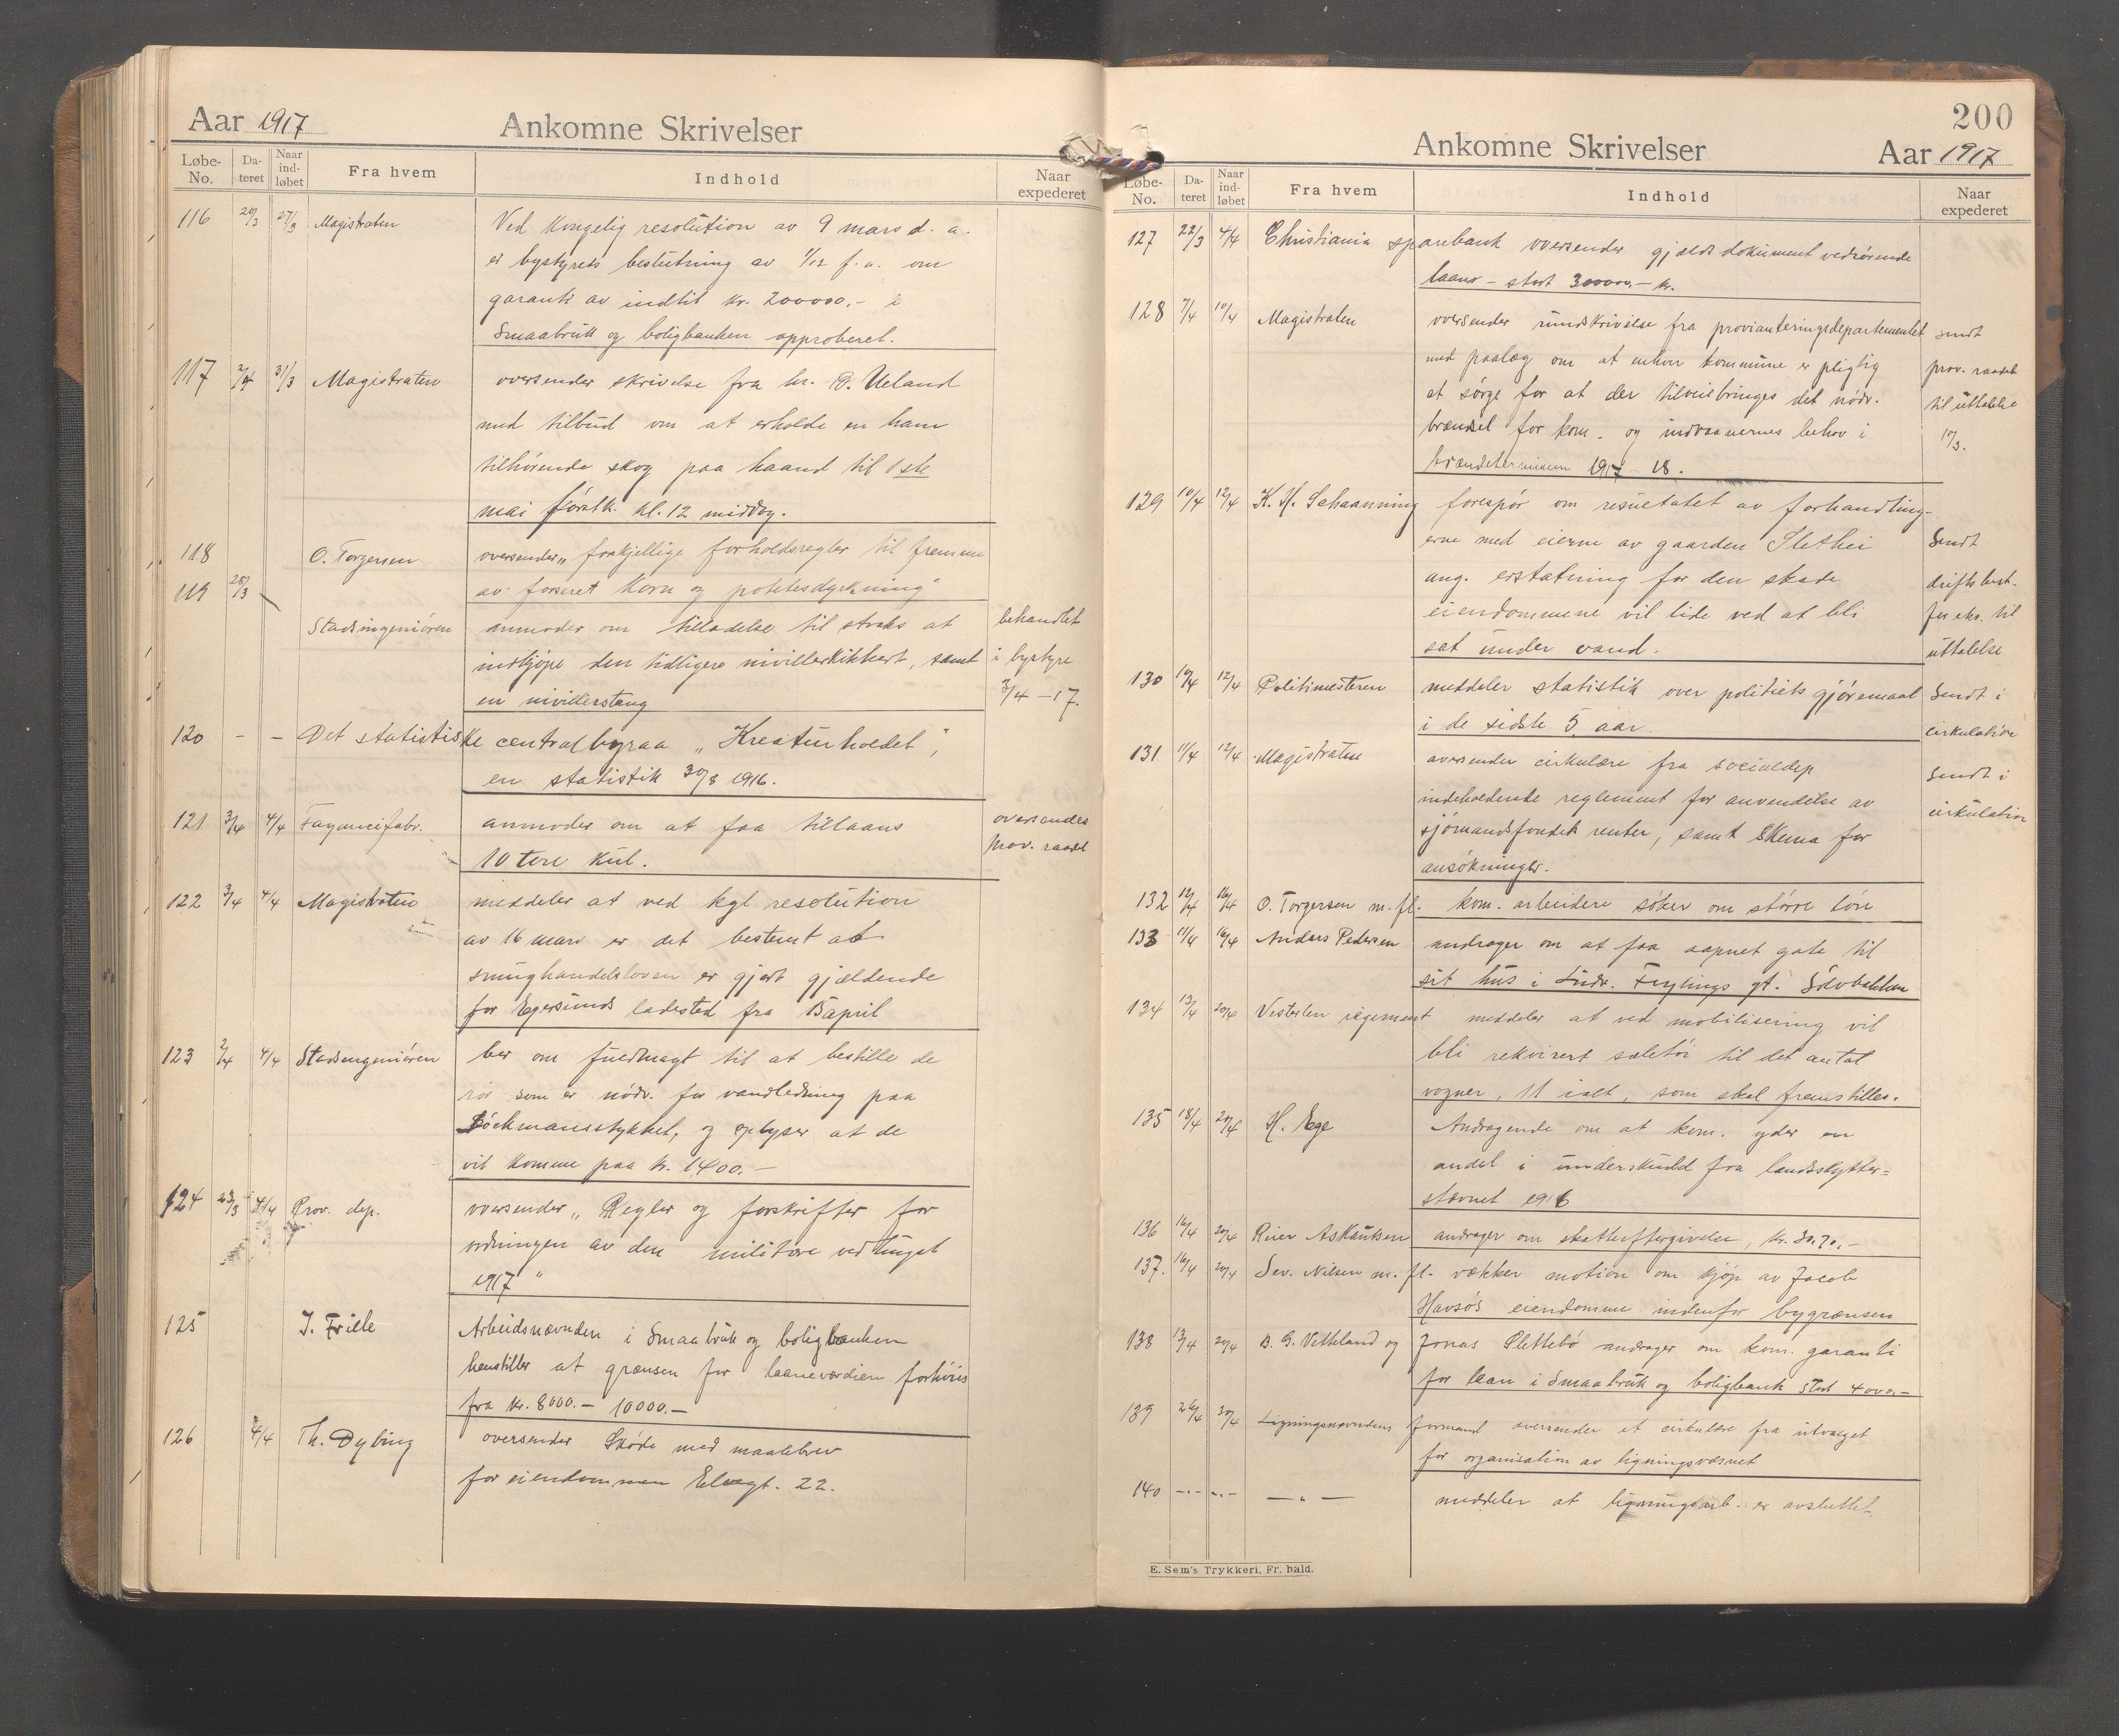 Aar 1917 Ankomne Skrivelser
Løbe-No. Da-teret Naar ind-løbet Fra hvem Indhold Naar expederet
116 20/3 27/3 Magistraten Ved Kongelig resolution av 9 mars d. a.
er bystyrets beslutning av 1/12 f. a. om
garanti av indtil kr. 200000,- i
Smaabruk og boligbanken approberet.
117 31/3 Magistraten oversender skrivelse fra hr. Ueland
med tilbud om at erholde en ham
tilhørende skog paa haand til 1ste
mai førstk. kl. 12 middag.
118 O. Torgersen oversender „forskjellige forholdsregler til fremme
av forseret korn og potetesdyrkning"
119 28/3 Stadsingeniøren anmoder om tilladelse til straks at behandlet
indkjøpe den tidligere nivillerkikkert, samt i bystyre
en nivillerstang 3/4 - 17.
120 - - Det statistiske centralbyraa „Kreaturholdet",
en statistik 30/8 1916.
121 3/4 4/4 Fayancefabr. anmoder om at faa tillaans oversendes
10 tons kul. prov. raadet
122 3/4 4/4 Magistraten meddeler at ved kgl resolution
av 16 mars er det bestemt at
smughandelsloven er gjort gjældende
for Egersunds ladested fra 15 april
123 2/4 4/4 Stadsingeniøren ber om fuldmagt til at bestille de
rør som er nødv. for vandledning paa
Böckmansstykket, og oplyser at de
vil komme paa kr. 1400.-
124 23/3 4/4 Prov. dep. oversender „Regler og forskrifter for
ordningen av den militære vedhugst
1917"
125 J. Friele Arbeidsnævnden i Smaabruk og boligbanken
henstiller at grænsen for laaneværdien forhøies
fra kr. 8000.- 10000.-
126 4/4 Th. Dybing oversender Skøde med maalebrev
for eiendommen Elvegt. 22.
200
Ankomne Skrivelser Aar 1917
Løbe-No. Da-teret Naar ind-løbet Fra hvem Indhold Naar expederet
127 22/3 4/4 Christiania sparebank oversender gjælds dokument vedrørende
laans - stort 300000,- kr.
128 7/4 10/4 Magistraten oversender rundskrivelse fra provianteringsdepartementet sendt
med paalæg om at enhver kommune er pligtig prov. raadet
at sørge for at der tilveiebringes det nødv. til uttalelse
brændsel for kom. og indvaanernes behov i 10/3.
brændeterminen 1917 - 18.
129 10/4 12/4 K. H. Schaanning forespør om resultatet av forhandling-
erne med eierne av gaarden Slethei Sendt
ang. erstatning for den skade driftsbest.
eiendommene vil lide ved at bli til
sat under vand. uttalelse
130 10/4 12/4 Politimesteren meddeler statistik over politiets gjøremaal Sendt i
i de sidste 5 aar. cirkulation
131 11/4 12/4 Magistraten oversender cirkulære fra socialdep Sendt i
indeholdende reglement for anvendelse av cirkulation
sjømandsfondets renter, samt Skema for
ansøkninger.
132 12/4 16/4 O. Torgersen m. fl. kom. arbeidere søker om større løn
133 11/4 16/4 Anders Pedersen andrager om at faa aapnet gate til
sit hus i Ludv. Feylings gt. Sølvbakken
134 13/4 20/4 Vesterlen regement meddeler at ved mobilisering vil
bli rekvirert seletøi til det antal
vogner, 11 ialt, som skal fremstilles.
135 18/4 20/4 H. Ege Andragende om at kom. yder en
andel i underskudd fra landsskytter-
stævnet 1916
136 16/4 20/4 Reier Aslaksen andrager om skatteeftergivelse, kr. 30.70.-
137. 16/4 20/4 Sev. Nilsen m. fl. vækker motion om kjøp av Jacob
Havsøs eiendomme indenfor bygrænsen
138 13/4 20/4 B. G. Vetteland og Jonas Slettebø andrager om kom. garanti
for laan i Smaabruk og boligbank stort 4000.-
139 26/4 30/4 Ligningsnævndens formand oversender et cirkulære fra utvalget
for organisation av ligningsvæsnet
140 -"- -"- -"- meddeler at ligningsarb. er avsluttet
E. Sem's Trykkeri, Fr.hald.